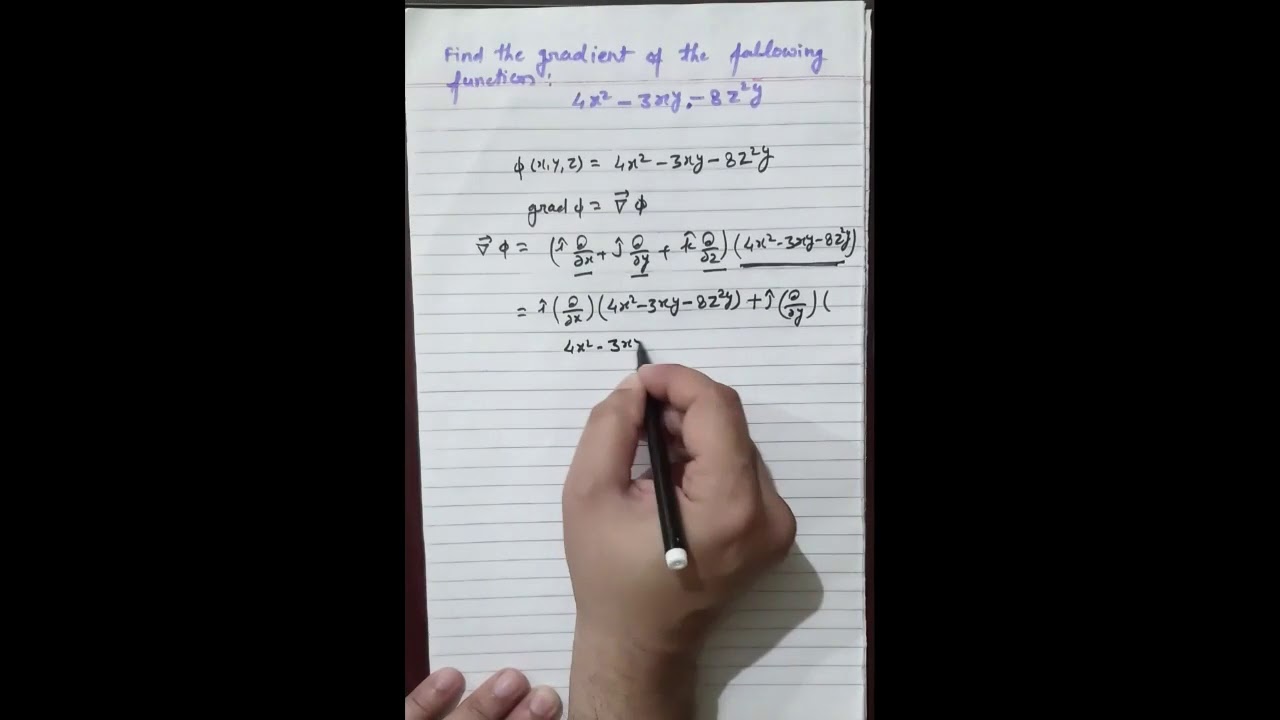 Find the gradient of the following
functions:
4x² - 3xy - 8z²y
ϕ(x,y,z) = 4x² - 3xy - 8z²y
grad ϕ = ∇⃗ ϕ
∇⃗ ϕ = (î ∂/∂x + ĵ ∂/∂y + k̂ ∂/∂z) (4x² - 3xy - 8z²y)
= î (∂/∂x) (4x² - 3xy - 8z²y) + ĵ (∂/∂y) (
4x² - 3xy